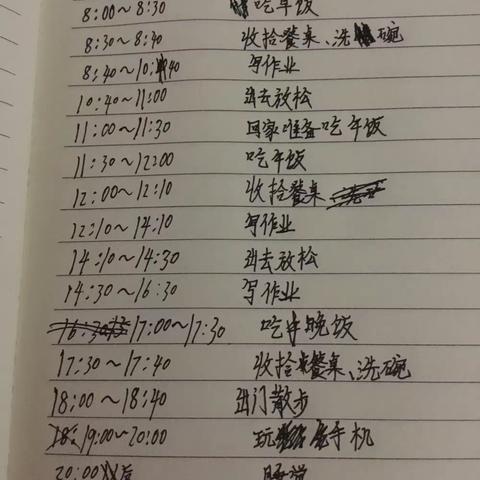 8:00~8:30 吃早饭
8:30~8:40 收拾餐桌、洗碗
8:40~10:40 写作业
10:40~11:00 出去放松
11:00~11:30 回家准备吃午饭
11:30~12:00 吃午饭
12:00~12:10 收拾餐桌
12:10~14:10 写作业
14:10~14:30 出去放松
14:30~16:30 写作业
17:00~17:30 吃晚饭
17:30~17:40 收拾餐桌、洗碗
18:00~18:40 出门散步
19:00~20:00 玩手机
20:00以后 睡觉